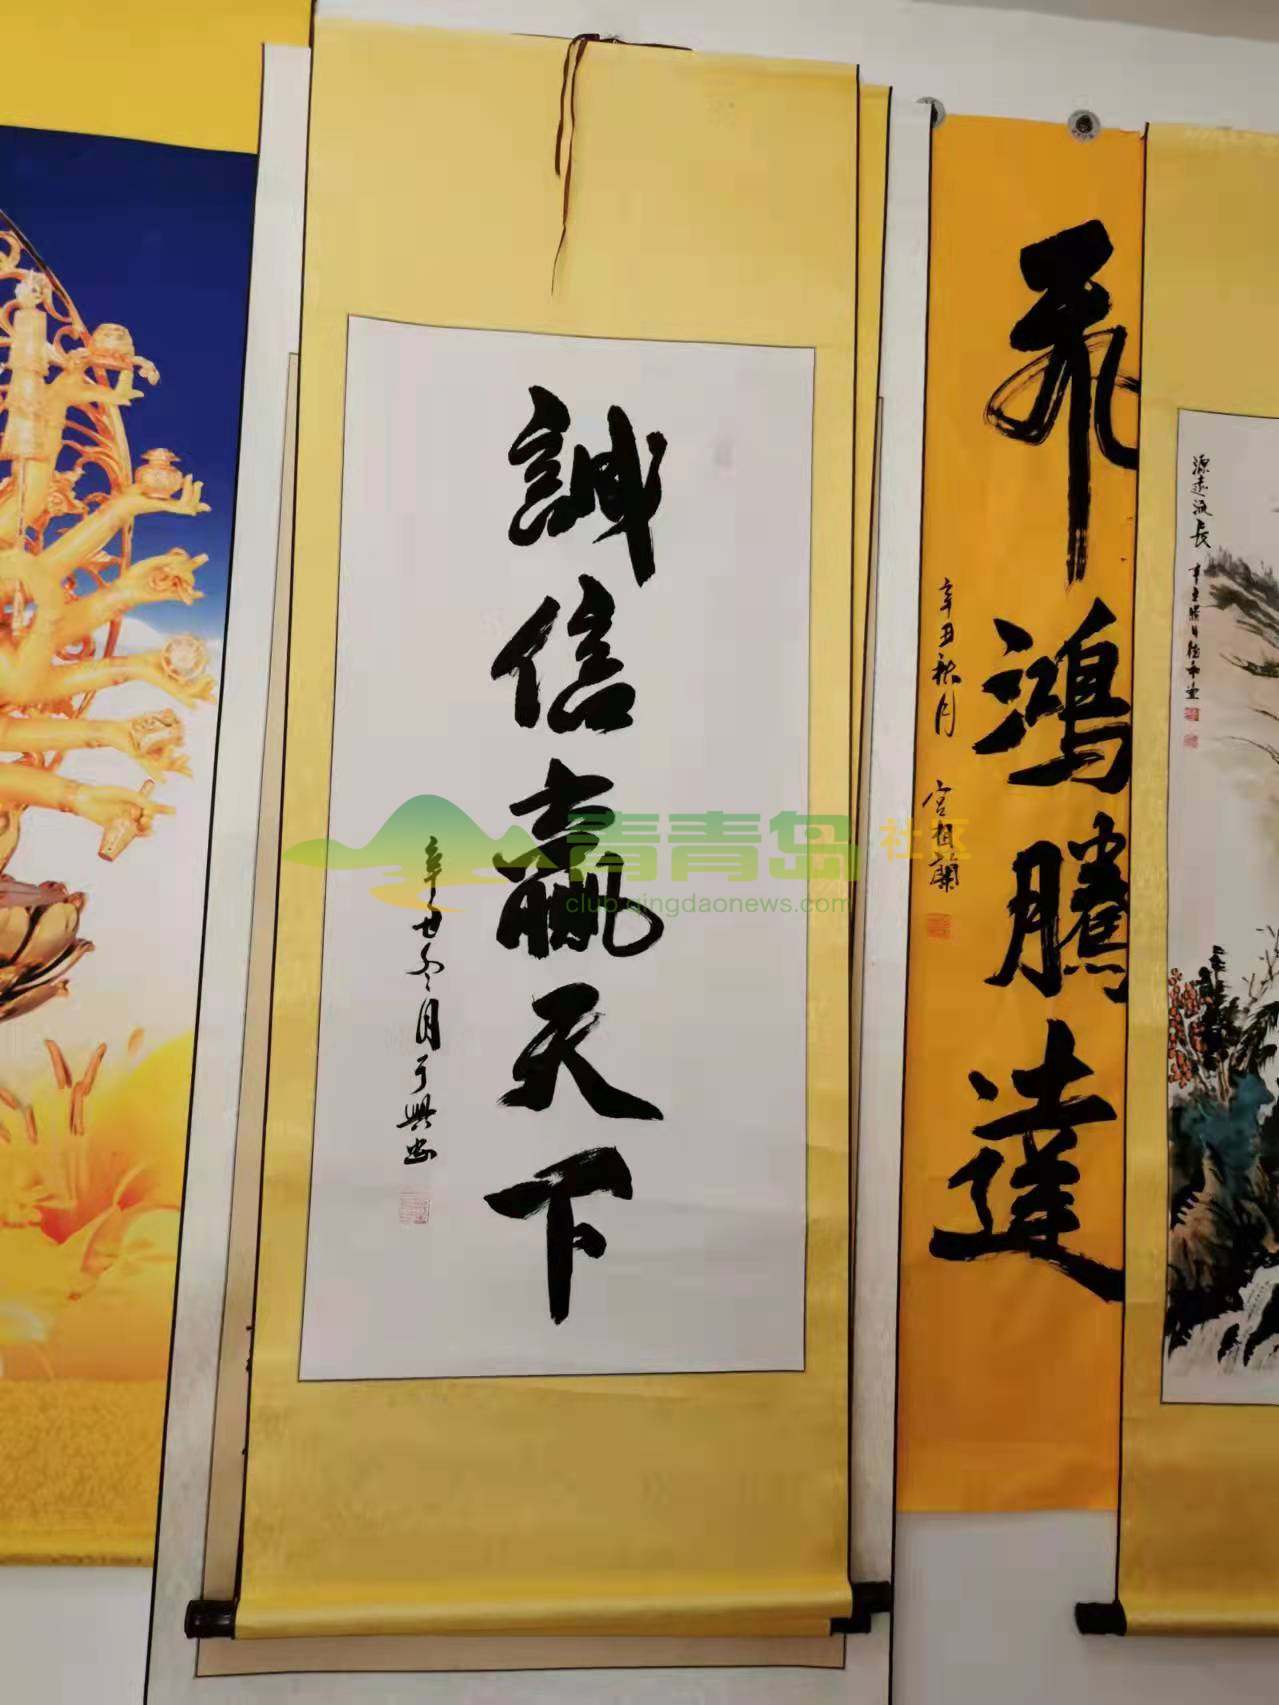 誠信贏天下
辛丑冬月于興忠
飛鴻騰達
辛丑秋月 宮相蘭
源遠流長
青青岛社区
club.qingdaonews.com